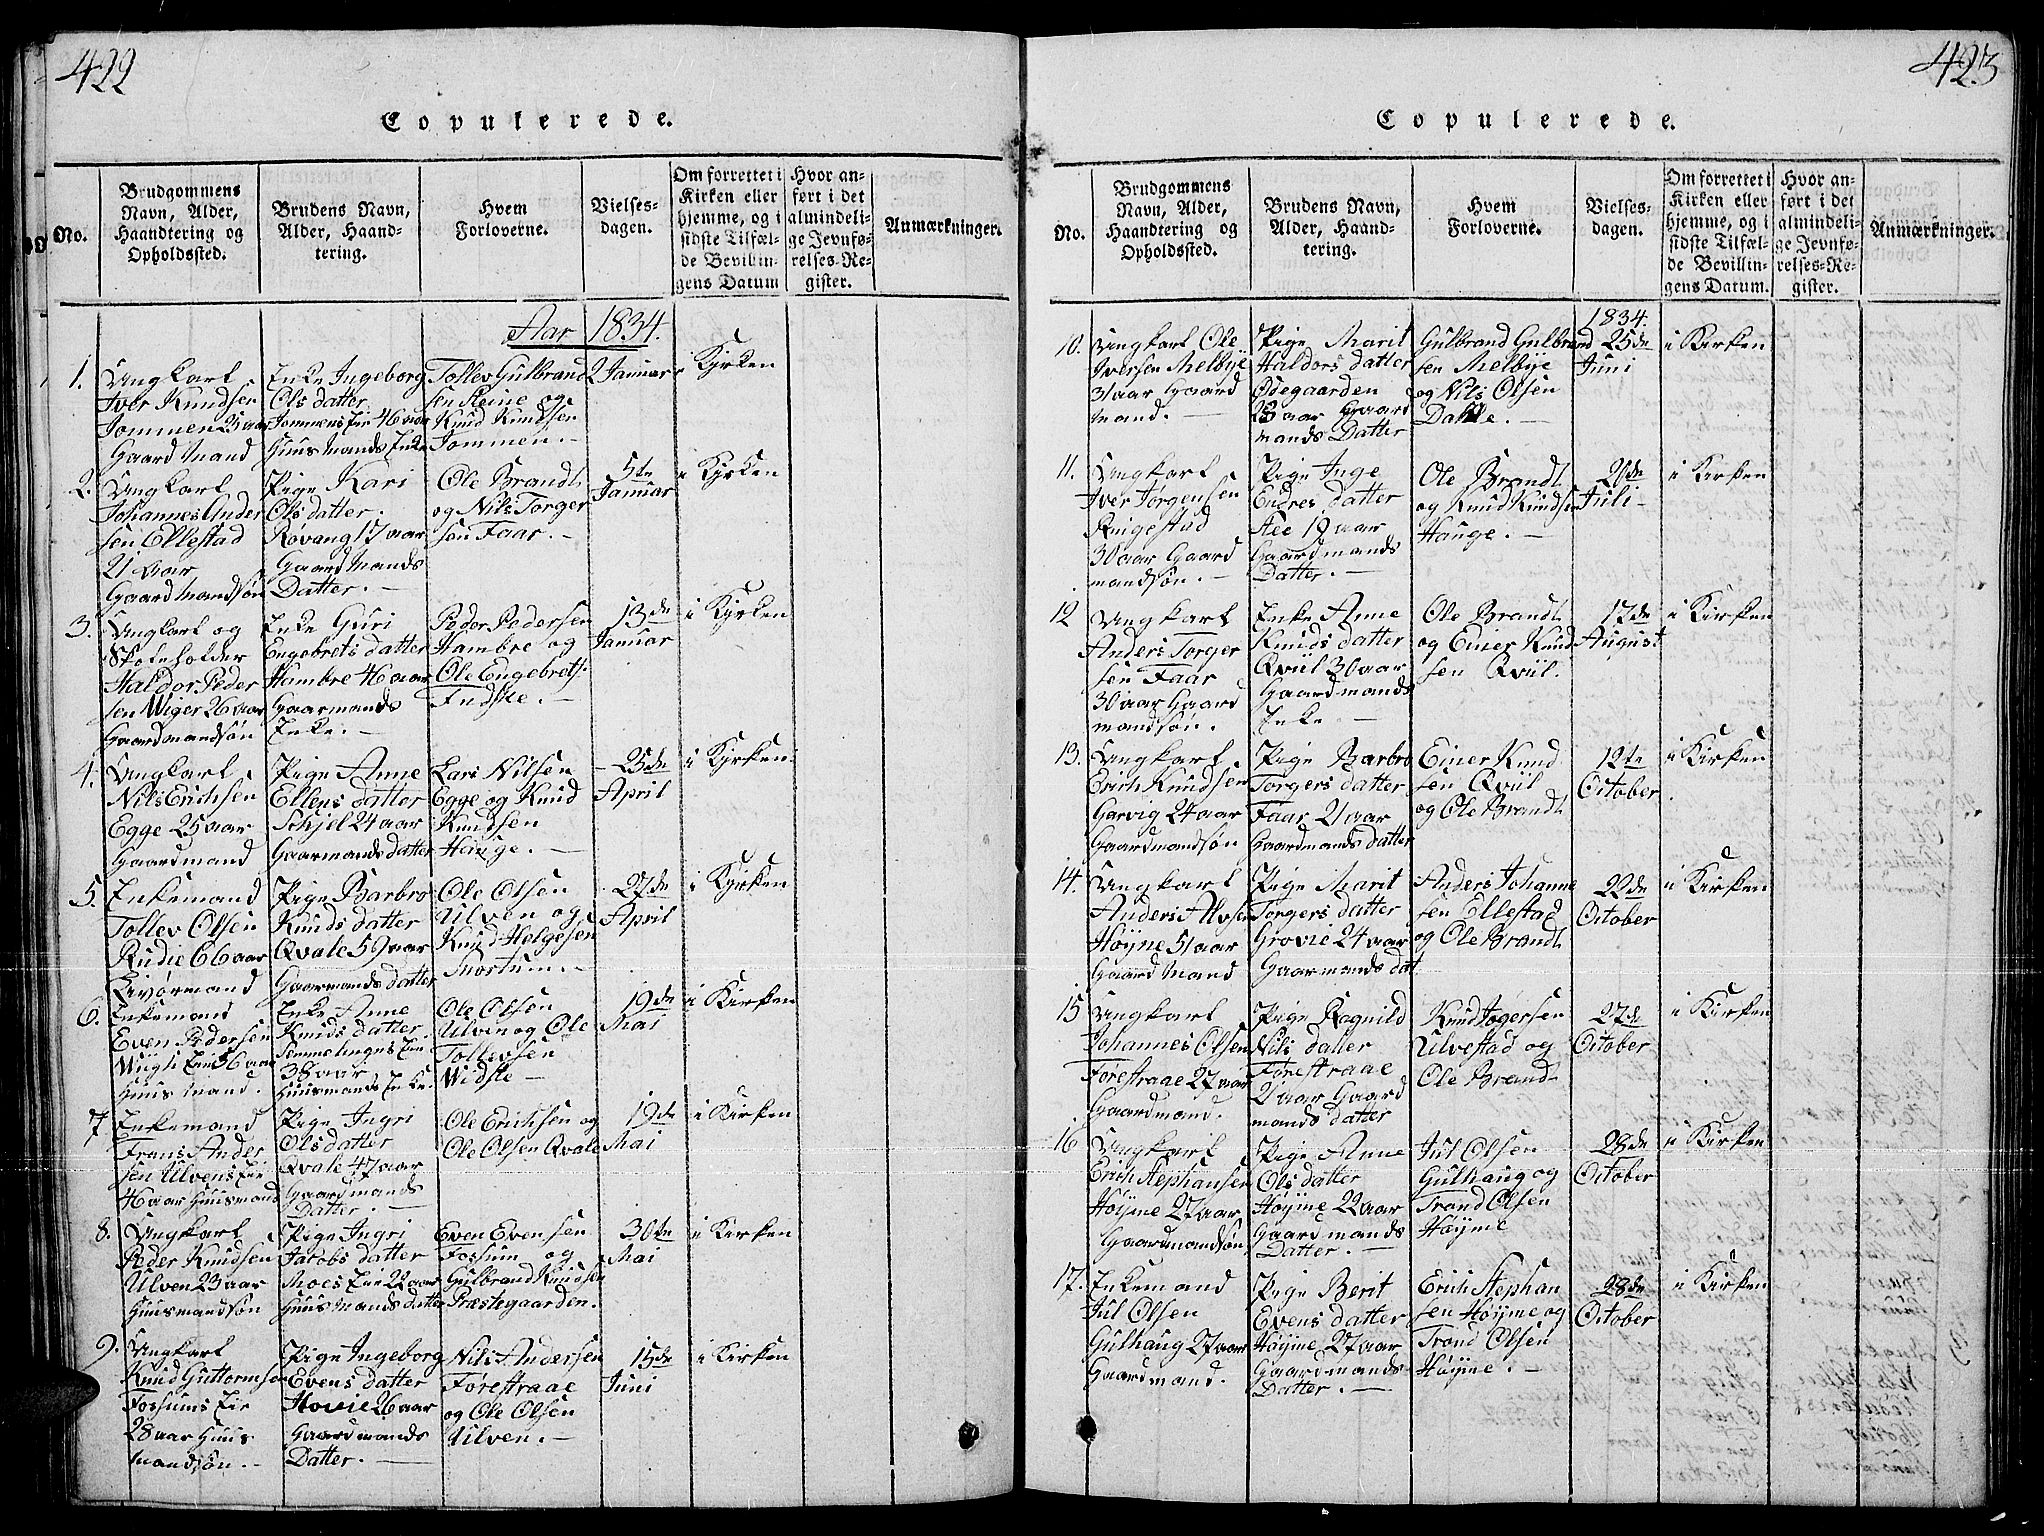 422
Copulerede.
No.
Brudgommens
Navn, Alder,
Haandtering og
Opholdssted.
Brudens Navn,
Alder, Haand-
tering.
Hvem
Forloverne.
Vielses-
dagen.
Om forrettet i
Kirken eller
hjemme, og i
sidste Tilfæl-
de Bevillin-
gens Datum
Hvor an-
ført i det
almindeli-
ge Jevnfø-
relses-Re-
gister.
Anmærkninger.
Aar 1834.
1.
Ungkarl
Iver Knudsen
Jommen 25 aar
Gaard Mand
Enke Ingeborg
Ols datter
Jommens Eie 46 aar
Huusmands Enke
Tollev Gulbrand
sen Steine og
Knud Knudsen
Jommen.
2 Januar
i Kyrken
2.
Ungkarl
Johannes Ander
sen Ellestad
21 aar
Gaard Mandsøn
Pige Kari
Ols datter
Røvang 17 aar
Gaard Mands
Datter.
Ole Brandt
og Nils Torger
sen Faar.
5te
Januar
i Kyrken
3.
Ungkarl og
Skoleholder
Haldor Peder
sen Wiger 26 aar
Gaardmandsøn
Enke Guri
Engebrets datter
Hambre 46 aar
Gaarmands
Enke.
Peder Pedersen
Hambre og
Ole Engebrets:
Fndske.
13de
Januar
i Kyrken
4.
Ungkarl
Nils Erichsen
Egge 25 aar
Gaardmand
Pige Anne
Ellens datter
Schjel 24 aar
Gaarmands datter
Lars Nilsen
Egge og Knud
Knudsen
Hauge.
25de
April
i Kyrken
5.
Enkemand
Tollev Olsen
Rudie 66 aar
Livørmand
Pige Barbro
Knuds datter
Qvale 59 aar
Gaarmands datter
Ole Olsen
Ulven og
Knud Helgesen
Snortum.
27de
April
i Kyrken
6.
Enkemand
Even Pedersen
Wiigts Eie 56 aar
Huus Mand.
Enke Anne
Knuds datter
Semmelinges Eie
38 aar
Huusmands Enke
Ole Olsen
Ulven og Ole
Tollevsen
Widste
19de
Mai
i Kirken
7.
Enkemand
Frans Ander
sen Ulvens Eie
46 aar Huusmand
Pige Ingri
Ols datter
Qvale 47 aar
Gaardmands
Datter.
Ole Erichsen og
Ole Olsen Qvale
19de
Mai
i Kirken
8.
Ungkarl
Peder Knudsen
Ulven 23 aar
Huusmandsøn
Pige Ingri
Jacobs datter
Moes Eie 22 aar
Huus Mands datter
Even Evensen
Fossum og
Gulbrand Knudsen
Præstegaarden.
30te
Mai
i Kirken
9.
Ungkarl
Knud Guttormsen
Fossums Eie
28 aar Huus
mandsøn.
Pige Ingeborg
Evens datter
Hovie 26 aar
Gaardmands
Datter.
Nils Andersen
Førestraae
og Ole Olsen
Ulven.
15de
Juni
i Kirken
423
Copulerede.
No.
Brudgommens
Navn, Alder,
Haandtering og
Opholdssted.
Brudens Navn,
Alder, Haand-
tering.
Hvem
Forloverne.
Vielses-
dagen.
Om forrettet i
Kirken eller
hjemme, og i
sidste Tilfæl-
de Bevillin-
gens Datum.
Hvor an-
ført i det
almindeli-
ge Jevnfø-
relses-Re-
gister.
Anmærkninger.
1834.
10.
Ungkarl Ole
Iversen Melbye
31 aar Gaard
Mand.
Pige Marit
Haldors datter
Ødegaarden
28 aar Gaard
mands Datter
Gulbrand Gulbrand
sen Melbye
og Nils Olsen
Dahle.
25de
Juni
i Kirken
11.
Ungkarl
Iver Jørgensen
Ringestad
30 aar Gaard
mandsøn.
Pige Inge
Endres datter
Aee 19 aar
Gaardmands
Datter.
Ole Brandt
og Knud Knudsen
Hauge.
20de
Juli
i Kirken
12
Ungkarl
Anders Torger
sen Faar
30 aar Gaard
mandsøn.
Enke Anne
Knuds datter
Qviil 30 aar
Gaardmands
Enke.
Ole Brandt
og Einer Knud
sen Qviil.
17de
August
i Kirken
13.
Ungkarl
Erich Knudsen
Garvig 24 aar
Gaardmandsøn
Pige Barbro
Torgers datter
Faar 21 aar
Gaardmands datter
Einer Knud
sen Qviil
og Ole Brandt
12te
October
i Kirken
14.
Ungkarl
Anders Alvsen
Høyne 51 aar
Gaard Mand
Pige Marit
Torgers datter
Grovie 24 aar
Gaarmands dat
Anders Johanne
sen Ellestad
og Ole Brandt
22de
October
i Kirken
15
Ungkarl
Johannes Olsen
Førestraae 27 aar
Gaardmand.
Pige Ragnild
Nils datter
Førestraae
21 aar Gaard
mands datter
Knud Jogersen
Ulvestad og
Ole Brand
27de
October
i Kirken
16
Ungkarl
Erich Stephansen
Høyme 27 aar
Gaardmandsøn
Pige Anne
Ols datter
Høyme 22 aar
Gaardmands
Datter.
Jul Olsen
Gulhaug og
Trond Olsen
Høyme
28de
October
i Kirken
17.
Enkemand
Jul Olsen
Gulhaug 27 aar
Gaardmand.
Pige Berit
Evens datter
Høyme 27 aar
Gaardmands
Datter.
Erich Stephan
sen Høyme og
Trond Olsen
Høyme.
28de
October
i Kirken